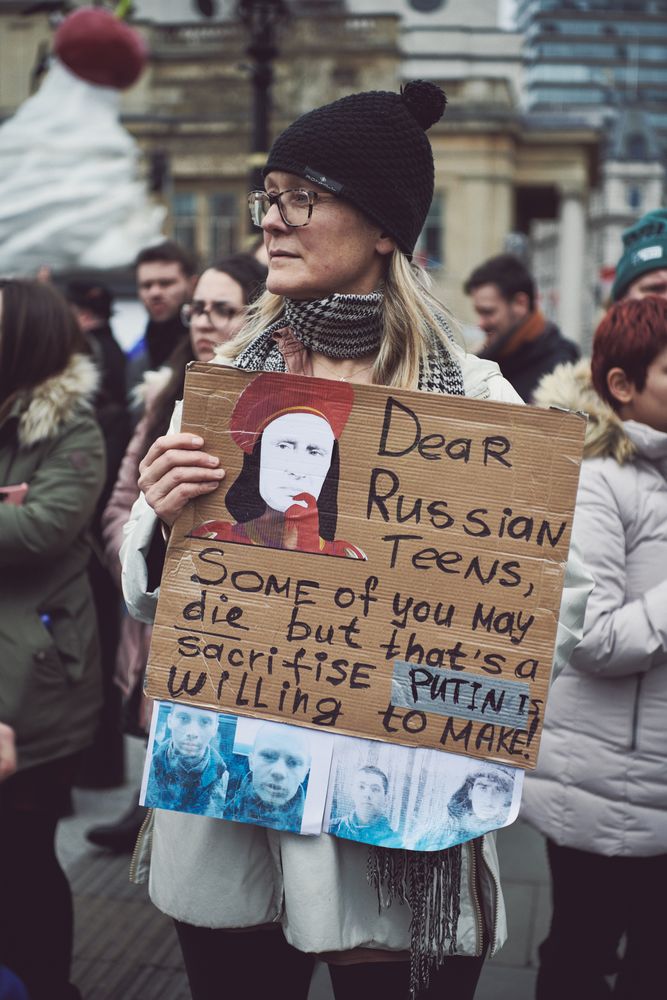 Dear
Russian
Teens,
Some of you may
die but that's a
sacrifise PUTIN IS
willing to MAKE!